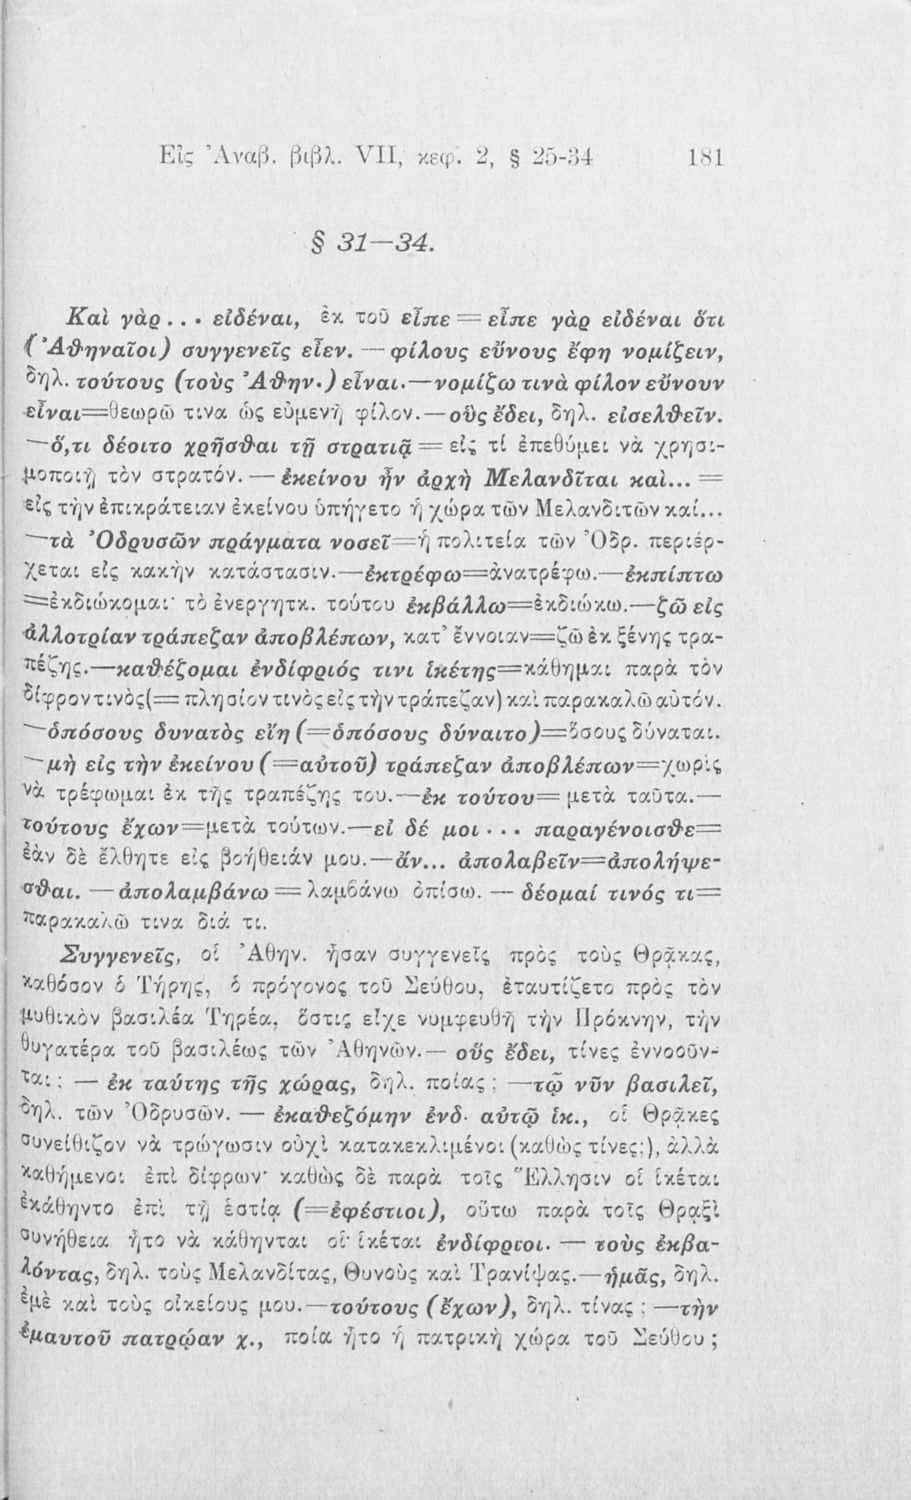 Εἰς Ἀναβ. βιβλ. VII, κεφ. 2, § 25-34 181
§ 31—34.
Καὶ γὰρ... εἰδέναι, ἐκ τοῦ εἶπε = εἶπε γὰρ εἰδέναι ὅτι
(Ἀθηναῖοι) συγγενεῖς εἶεν. — φίλους εὔνους ἔφη νομίζειν,
δηλ. τούτους (τοὺς Ἀθην.) εἶναι.—νομίζω τινὰ φίλον εὔνουν
εἶναι=θεωρῶ τινα ὡς εὐμενῆ φίλον.—οὓς ἔδει, δηλ. εἰσελθεῖν.
—ὅ,τι δέοιτο χρῆσθαι τῇ στρατιᾷ = εἰς τί ἐπεθύμει νὰ χρησι-
μοποιῇ τὸν στρατόν. — ἐκείνου ἦν ἀρχὴ Μελανδῖται καὶ... =
εἰς τὴν ἐπικράτειαν ἐκείνου ὑπήγετο ἡ χώρα τῶν Μελανδιτῶν καί...
—τὰ Ὀδρυσῶν πράγματα νοσεῖ=ἡ πολιτεία τῶν Ὀδρ. περιέρ-
χεται εἰς κακὴν κατάστασιν.—ἐκτρέφω=ἀνατρέφω.—ἐκπίπτω
=ἐκδιώκομαι· τὸ ἐνεργητκ. τούτου ἐκβάλλω=ἐκδιώκω.—ζῶ εἰς
ἀλλοτρίαν τράπεζαν ἀποβλέπων, κατ' ἔννοιαν=ζῶ ἐκ ξένης τρα-
πέζης.—καθέζομαι ἐνδίφριός τινι ἱκέτης=κάθημαι παρὰ τὸν
δίφρον τινὸς (= πλησίον τινὸς εἰς τὴν τράπεζαν) καὶ παρακαλῶ αὐτόν.
—ὁπόσους δυνατὸς εἴη (=ὁπόσους δύναιτο)=ὅσους δύναται.
—μὴ εἰς τὴν ἐκείνου (=αὐτοῦ) τράπεζαν ἀποβλέπων=χωρὶς
νὰ τρέφωμαι ἐκ τῆς τραπέζης του.—ἐκ τούτου= μετὰ ταῦτα.—
τούτους ἔχων=μετὰ τούτων.—εἰ δέ μοι ... παραγένοισθε=
ἐὰν δὲ ἔλθητε εἰς βοήθειάν μου.—ἄν... ἀπολαβεῖν=ἀπολήψε-
σθαι. — ἀπολαμβάνω = λαμβάνω ὀπίσω. — δέομαί τινός τι=
παρακαλῶ τινα διά τι.
Συγγενεῖς, οἱ Ἀθην. ἦσαν συγγενεῖς πρὸς τοὺς Θρᾷκας,
καθόσον ὁ Τήρης, ὁ πρόγονος τοῦ Σεύθου, ἐταυτίζετο πρὸς τὸν
μυθικὸν βασιλέα Τηρέα, ὅστις εἶχε νυμφευθῆ τὴν Πρόκνην, τὴν
θυγατέρα τοῦ βασιλέως τῶν Ἀθηνῶν.— οὓς ἔδει, τίνες ἐννοοῦν-
ται; — ἐκ ταύτης τῆς χώρας, δηλ. ποίας; —τῷ νῦν βασιλεῖ,
δηλ. τῶν Ὀδρυσῶν. — ἐκαθεζόμην ἐνδ. αὐτῷ ἱκ., οἱ Θρᾷκες
συνείθιζον νὰ τρώγωσιν οὐχὶ κατακεκλιμένοι (καθὼς τίνες;), ἀλλὰ
καθήμενοι ἐπὶ δίφρων· καθὼς δὲ παρὰ τοῖς Ἕλλησιν οἱ ἱκέται
ἐκάθηντο ἐπὶ τῇ ἑστίᾳ (=ἐφέστιοι), οὕτω παρὰ τοῖς Θραξὶ
συνήθεια ἦτο νὰ κάθηνται οἱ ἱκέται ἐνδίφριοι. — τοὺς ἐκβα-
λόντας, δηλ. τοὺς Μελανδίτας, Θυνοὺς καὶ Τρανίψας.—ἡμᾶς, δηλ.
ἐμὲ καὶ τοὺς οἰκείους μου.—τούτους (ἔχων), δηλ. τίνας; —τὴν
ἐμαυτοῦ πατρῴαν χ., ποία ἦτο ἡ πατρικὴ χώρα τοῦ Σεύθου;